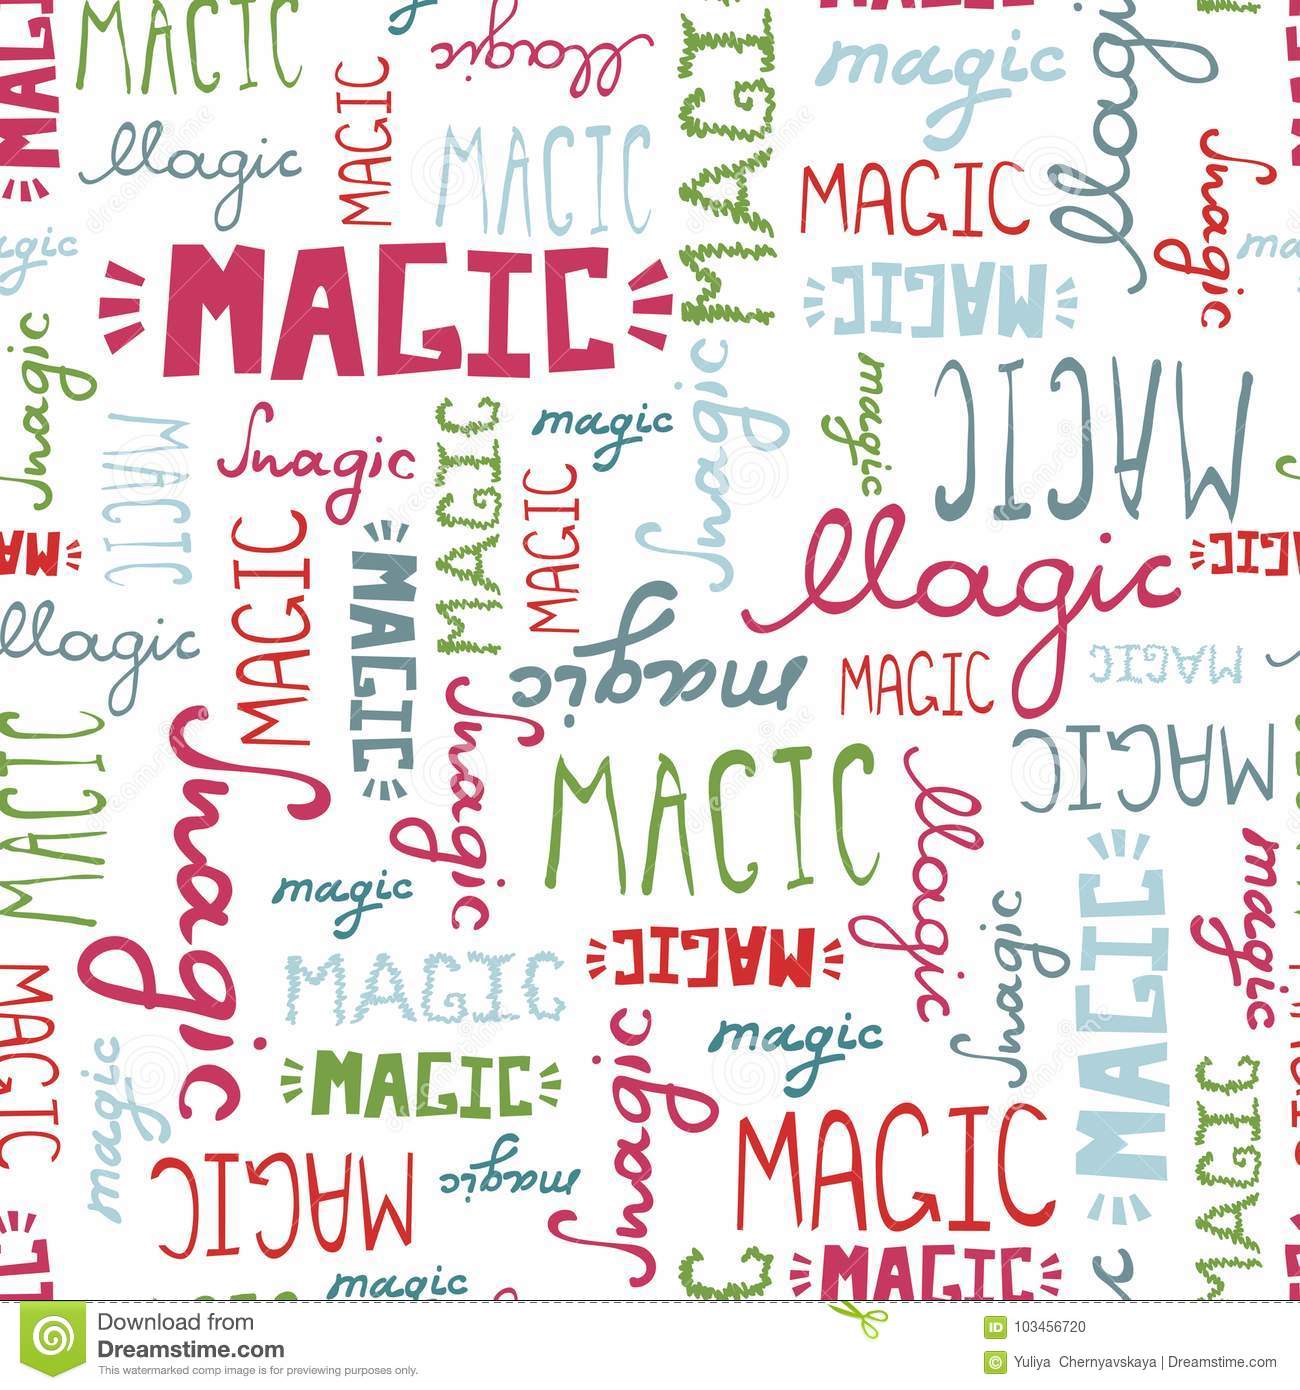 MAGIC
magic
MAGIC
magic
magic
magic
MAGIC
magic
MAGIC
MAGIC
MAGIC
magic
MAGIC
MAGIC
magic
MAGIC
magic
magic
MAGIC
magic
MAGIC
magic
MAGIC
magic
MAGIC
MAGIC
MAGIC
MAGIC
magic
MAGIC
magic
magic
MAGIC
MAGIC
magic
magic
MAGIC
MAGIC
MAGIC
magic
magic
magic
MAGIC
magic
magic
MAGIC
MAGIC
MAGIC
magic
magic
MAGIC
magic
MAGIC
MAGIC
MAGIC
magic
MAGIC
magic
MAGIC
Download from
Dreamstime.com
This watermarked comp image is for previewing purposes only.
ID 103456720
© Yuliya Chernyavskaya | Dreamstime.com